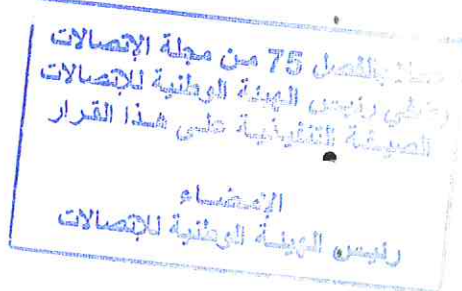 عملا بالفصل 75 من مجلة الإتصالات
رئيس الهيئة الوطنية للإتصالات
الصيغة التنفيذية على هذا القرار
الإمضاء
رئيس الهيئة الوطنية للإتصالات